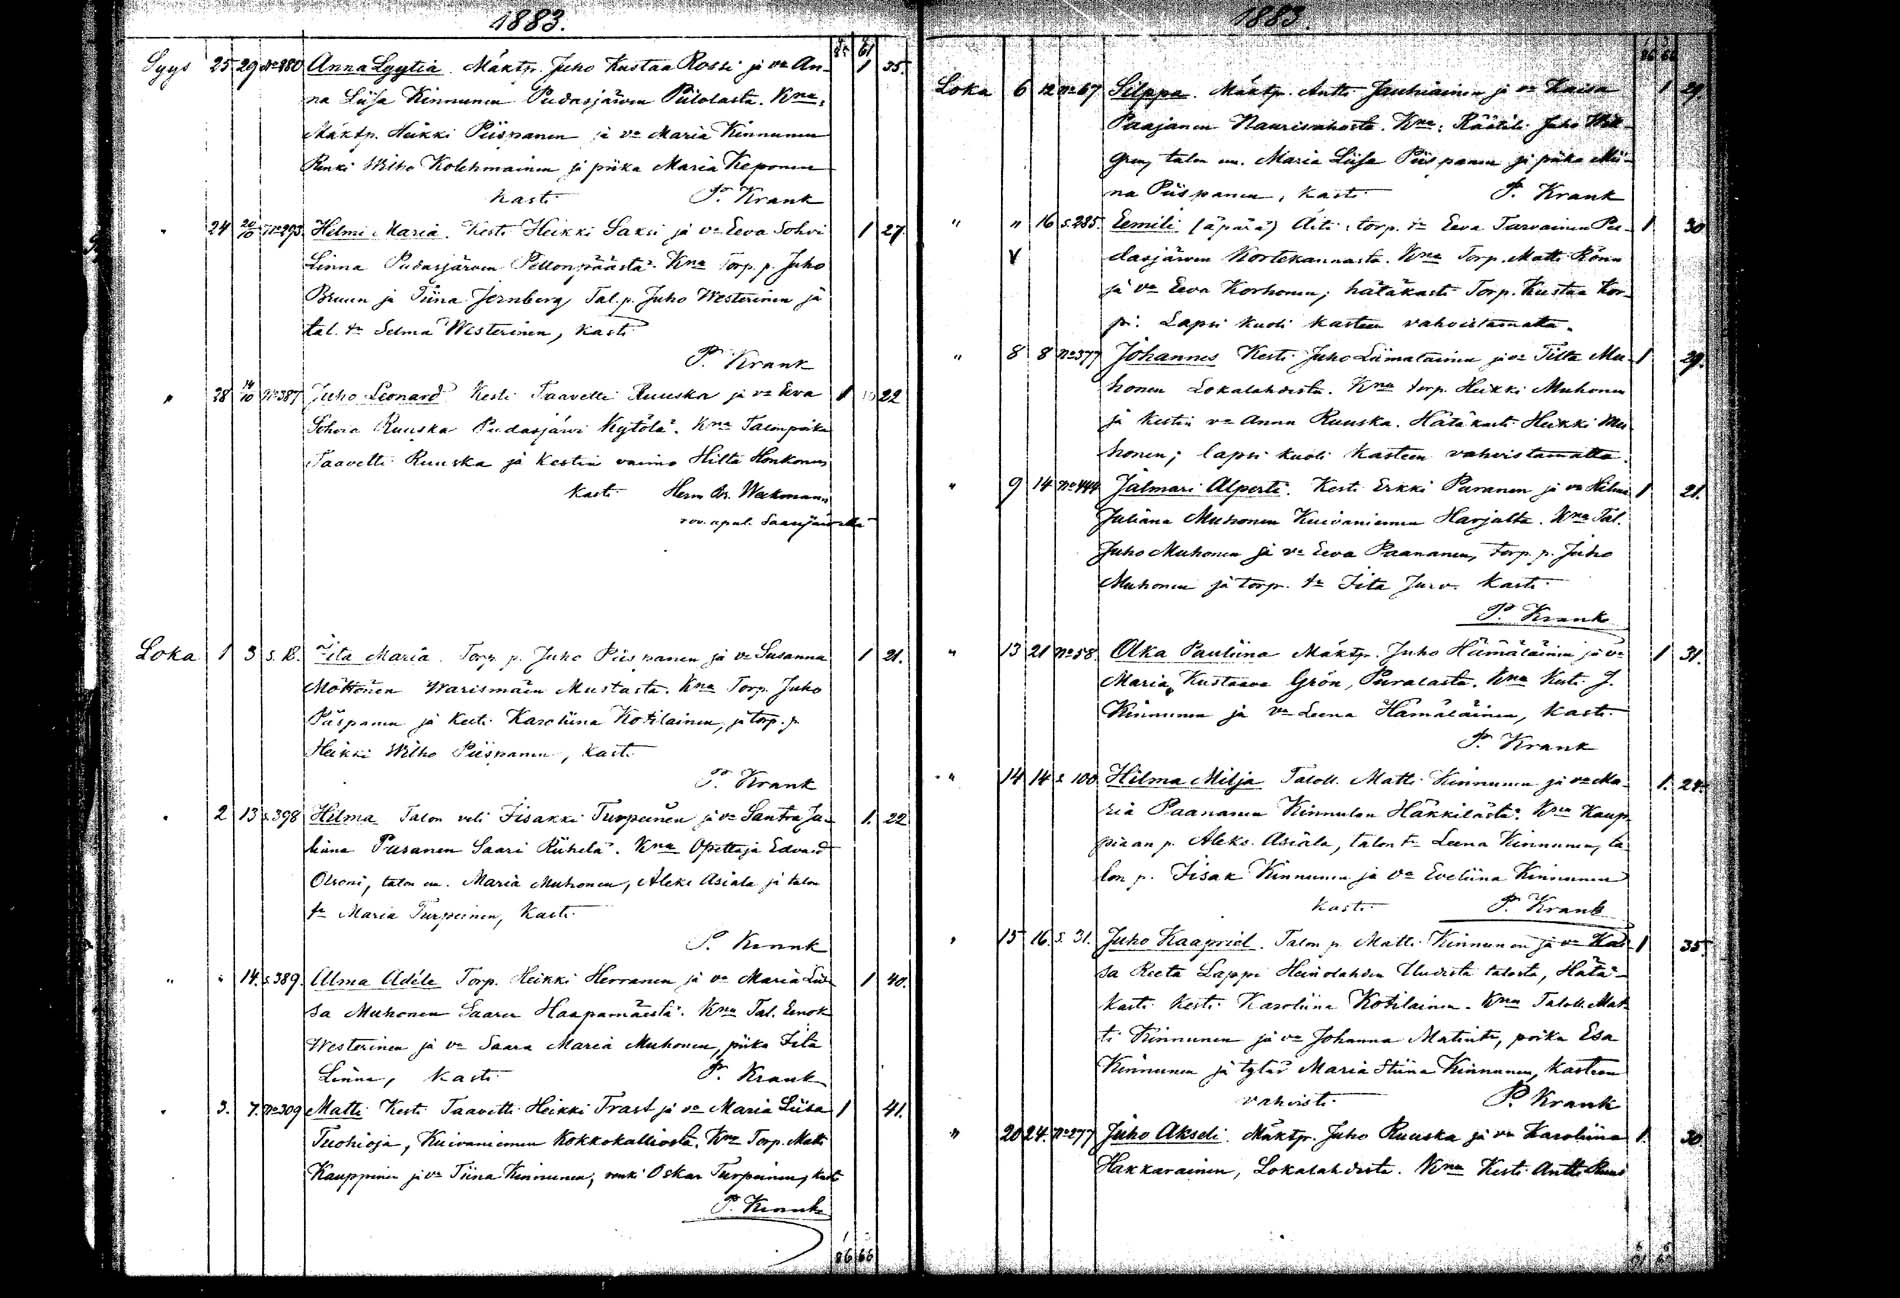 1883.
Syys 25 29 No 880 Anna Lyytia. Mäktp. Juho Kustaa Rossi ja vo An- 1 35.
na Liisa Kinnunen Pudasjärven Piilolasta. Kna:
Mäktp. Heikki Piispanen ja vo Maria Kinnunen
Renki Wilho Kolehmainen ja piika Maria Keponen
kasti P. Krank
" 24 20/10 No 293. Hilmi Maria. Kesti Heikki Saksi ja vo Eeva Sohvi 1 27
Linna Pudasjärven Pellonpäästä. Kna Torp. p. Juho
Bruun ja Tiina Jernberg, Tal. p. Juho Westerinen ja
tal. tr Selma Westerinen, kasti
P. Krank
" 28 14/10 No 387 Juho Leonard Kesti Taavetti Ruuska ja vo Eeva 1 22
Sohvia Ruuska Pudasjärvi Kytölä. Kna Talonpoika
Taavetti Ruuska ja Kestin vaimo Hilta Honkonen
kasti Herm. Weckmann
rov. apul. Saarijärveltä
Loka 1 3 s. 18. Iita Maria. Torp. p. Juho Piispanen ja vo Susanna 1 21.
Möttönen Warismäen Mustasta. Kna Torp. Juho
Piispanen ja Kesti Karoliina Kotilainen, ja torp. p.
Heikki Wilho Piispanen, kasti
P. Krank
" 2 13 s. 398 Hilma Talon veli Iisakki Turpeinen ja vo Santra Ju- 1. 22
liina Puranen Saari Riihelä. Kna Opettaja Edvard
Olsoni, talon em. Maria Muhonen, Aleks Asiala ja talon
tr Maria Turpeinen, kasti
P. Krank
" " 14. s. 389. Alma Adéle Torp. Heikki Herranen ja vo Maria Lii- 1 40.
sa Muhonen Saaren Haapamäestä. Kna Tal. Eenok
Westerinen ja vo Saara Maria Muhonen, piika Iita
Linna, kasti P. Krank
" 3. 7. No 309 Matti Kesti Taavetti Heikki Trast ja vo Maria Liisa 1 41.
Tuohioja, Kuivaniemen Kokkokalliosta. Kna Torp. Matti
Kauppinen ja vo Tiina Kinnunen, renki Oskar Turpeinen, kasti
P. Krank
86 66
1883.
Loka 6 12 No 67 Silppa. Mäktp. Antti Jauhiainen ja vo Kaisa 1 29.
Paajanen Naurisahosta. Kna: Räätäli Juho Wik-
gren, talon em. Maria Liisa Piispanen ja piika Mii-
na Piispanen, kasti P. Krank
" " 16 s. 285. Eemili (äpärä) Äiti: torp. tr Eeva Tarvainen Pu- 1 30
V dasjärven Kortekannasta. Kna Torp. Matti Rönn
ja vo Eeva Korhonen; hätäkasti Torp. Kustaa Kor-
pi. Lapsi kuoli kasteen vahvistamatta.
" 8 8 No 377 Johannes Kesti Juho Liimatainen ja vo Tilta Mu- 1 29.
honen Lokalahdesta. Kna torp. Heikki Muhonen
ja kestin vo Anna Ruuska. Hätäkasti Heikki Mu-
honen; lapsi kuoli kasteen vahvistamatta.
" 9 14 No 444 Jalmari Alpertti. Kesti Erkki Puranen ja vo Hilma 1 21.
Juliana Muhonen Kuivaniemen Harjulta. Kna Tal.
Juho Muhonen ja vo Eeva Paananen, torp. p. Juho
Muhonen ja torp. tr Iita Jurv. kasti
P. Krank
" 13 21 No 58. Olka Pauliina Mäktp. Juho Hämäläinen ja vo 1 31.
Maria Kustaava Grön, Puralasta. Kna Kesti J.
Kinnunen ja vo Leena Hämäläinen, kasti
P. Krank
" 14 14 s. 100 Hilma Milja Taloll. Matti Kinnunen ja vo Ma- 1. 24
ria Paananen Kinnulan Häkkilästä. Kna Kaup-
piaan p. Aleks. Asiala, talon tr Leena Kinnunen, ta-
lon p. Iisak Kinnunen ja vo Eveliina Kinnunen
kasti P. Krank
" 15 16. s. 31. Juho Kaapriel. Talon p. Matti Kinnunen ja vo Kai- 1 35.
sa Reeta Lappi Heinolahden Uudesta talosta, Hätä-
kasti Kesti Karoliina Kotilainen. Kna Taloll. Mat-
ti Kinnunen ja vo Johanna Matintr, poika Esa
Kinnunen ja tytär Maria Stiina Kinnunen, kasteen
vahvisti P. Krank
" 20 24. No 277 Juho Akseli. Mäktp. Juho Ruuska ja vo Karoliina 1. 30
Hakkarainen, Lokalahdesta. Kna Kesti Antti Ruus